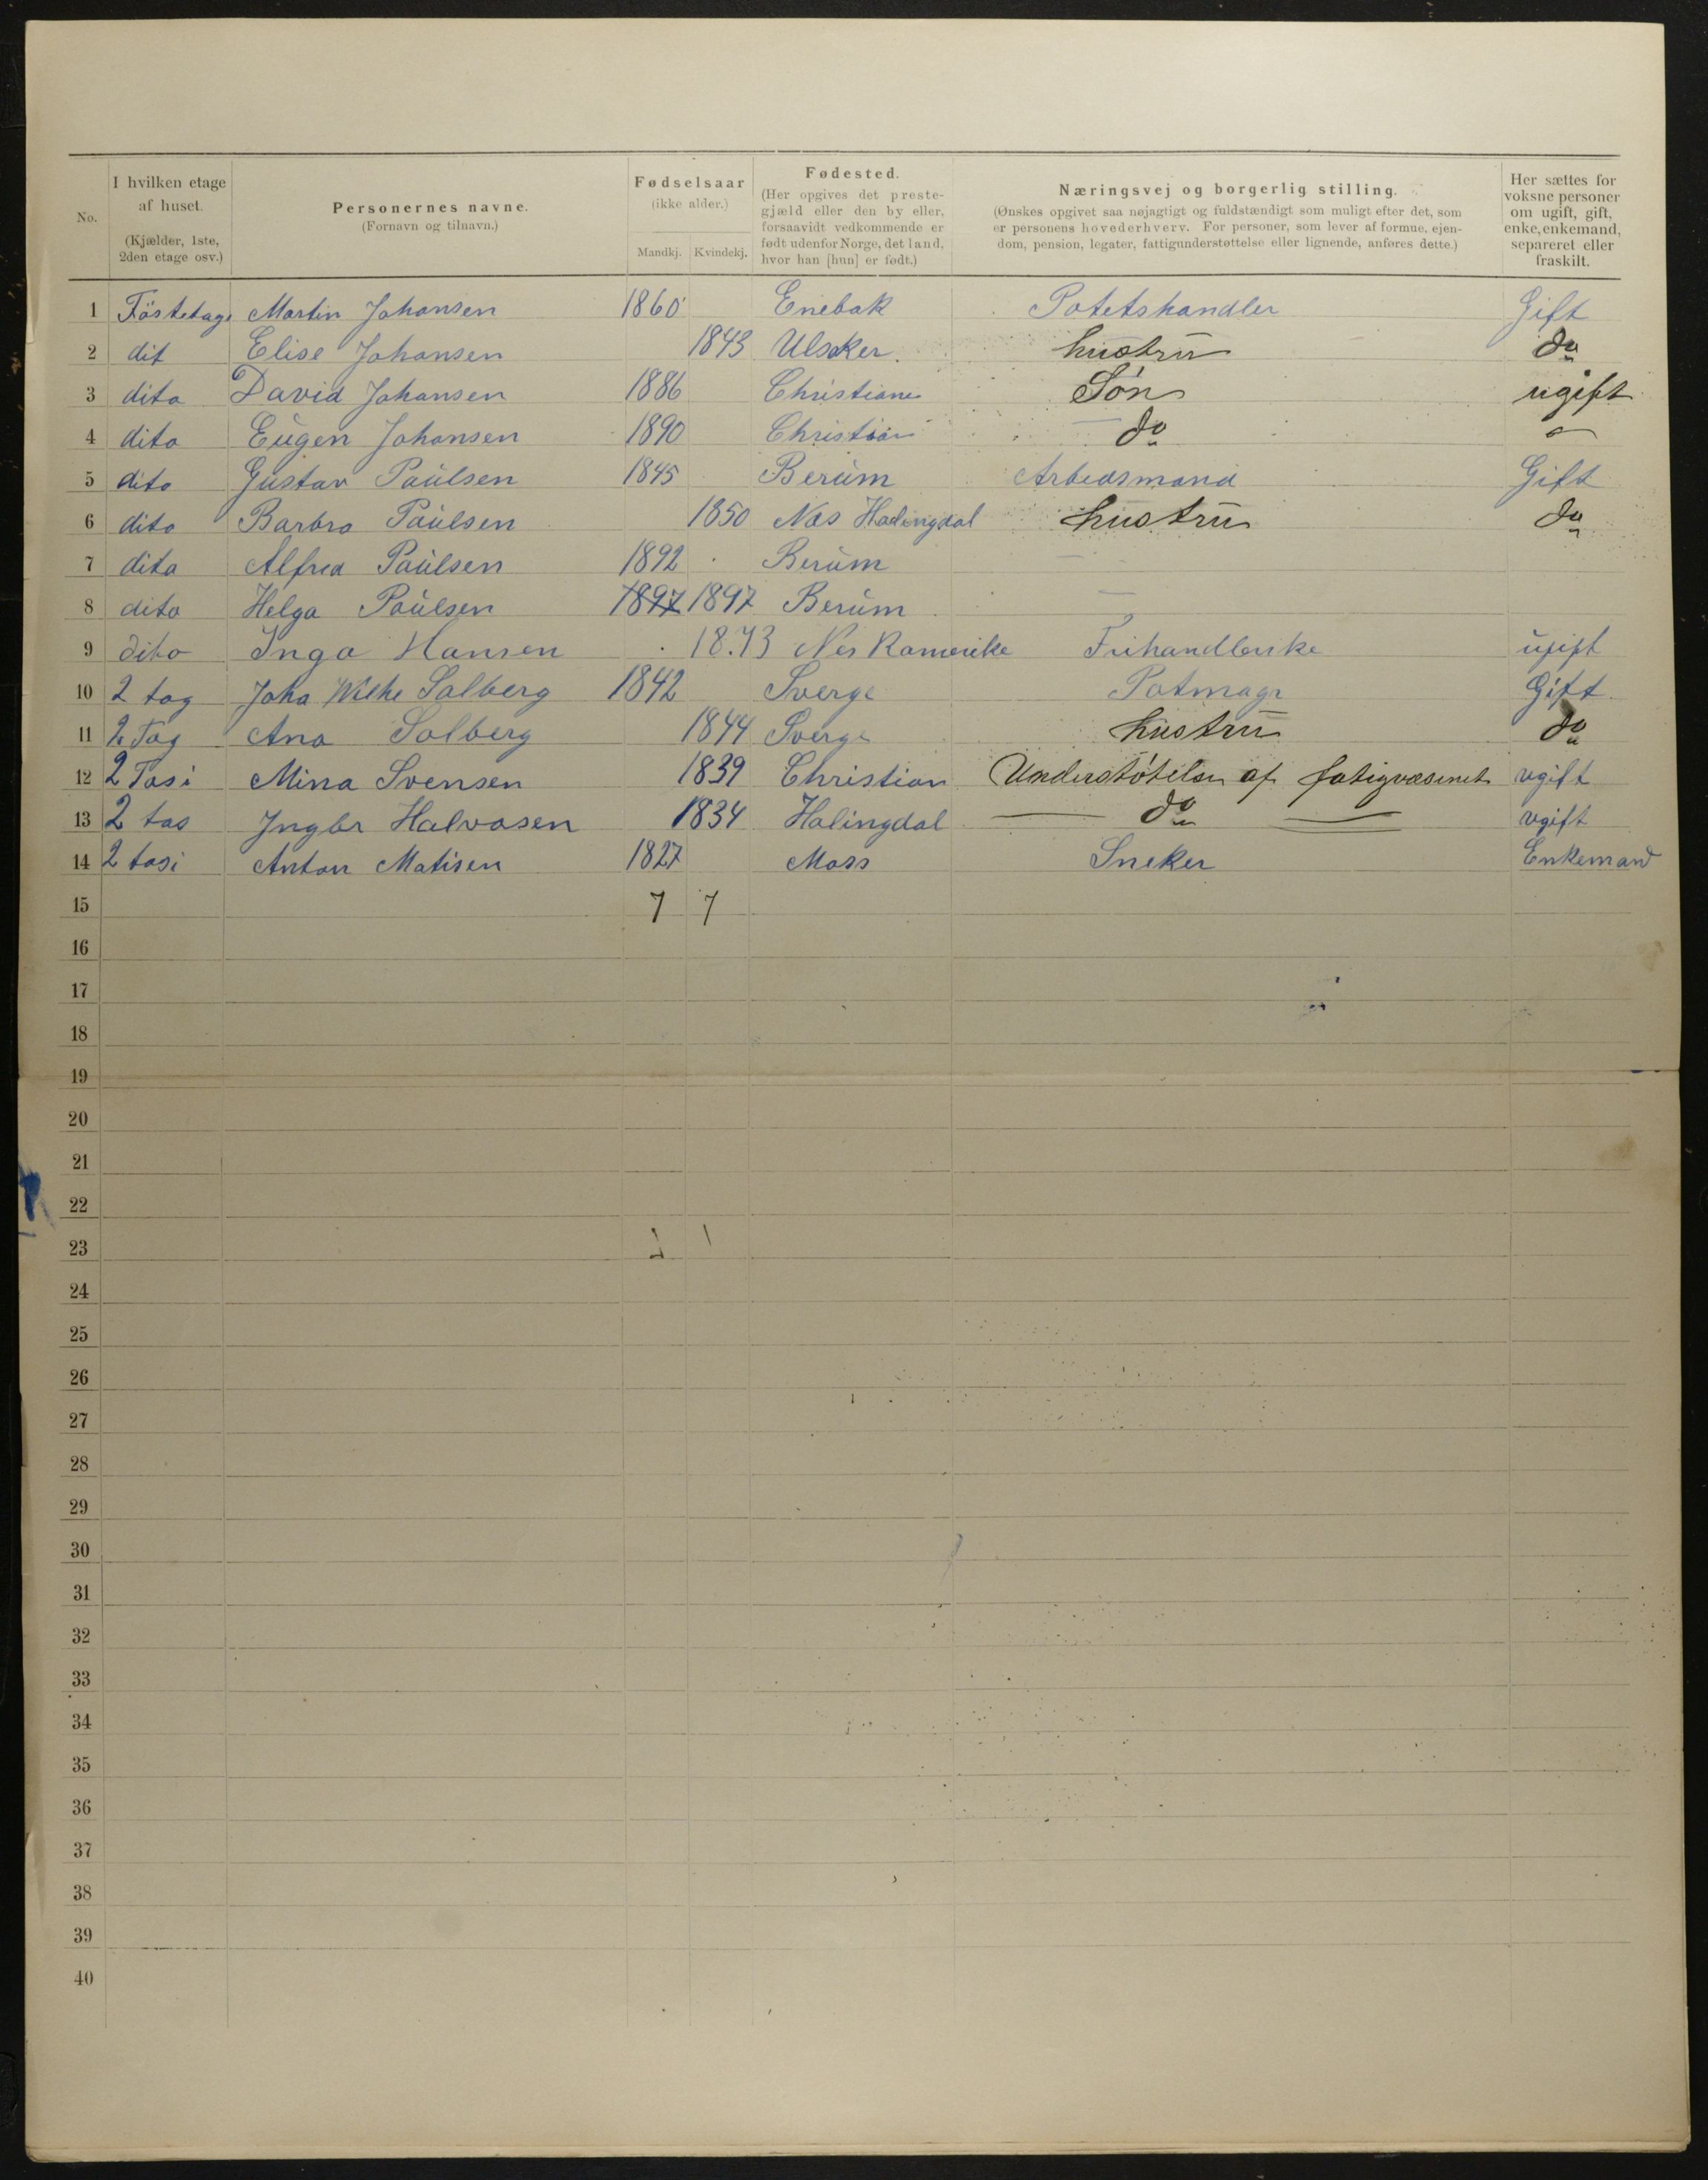 No. I hvilken etage af huset. (Kjælder, 1ste, 2den etage osv.) Personernes navne. (Fornavn og tilnavn.) Fødselsaar (ikke alder.) Mandkj. Kvindekj. Fødested. (Her opgives det prestegjæld eller den by eller, forsaavidt vedkommende er født udenfor Norge, det land, hvor han [hun] er født.) Næringsvej og borgerlig stilling. (Ønskes opgivet saa nøjagtigt og fuldstændigt som muligt efter det, som er personens hovederhverv. For personer, som lever af formue, ejendom, pension, legater, fattigunderstøttelse eller lignende, anføres dette.) Her sættes for voksne personer om ugift, gift, enke, enkemand, separeret eller fraskilt.
1 Föstetage Martin Johansen 1860 Enebak Potetshandler Gift
2 dit Elise Johansen 1843 Ulsaker. hustru do
3 dito David Johansen 1886 Christiane Søn ugift
4 dito Eugen Johansen 1890 Christian do
5 dito Gustav Paulsen 1845 Berum Arbedsmand Gift
6 dito Barbro Paulsen 1850 Nas Halingdal hustru do
7 dito Alfred Paulsen 1892 Berum —
8 dito Helga Paulsen 1897 1897 Berum —
9 dito Inga Hansen 18.73 Nes Romerike Frihandlerske ugift
10 2 tag Joha Wilhe Salberg 1842 Sverge Potmagr Gift
11 2 Tag Ana Salberg 1844 Sverge hustru do
12 2 Tasi Mina Svensen 1839 Christian Understøtelse af fatigvæsenet ugift
13 2 tas Ingbr Halvasen 1834 Halingdal — do — ugift
14 2 tasi Anton Matisen 1827 Moss Sneker Enkemand
15 7 7
16
17
18
19
20
21
22
23
24
25
26
27
28
29
30
31
32
33
34
35
36
37
38
39
40